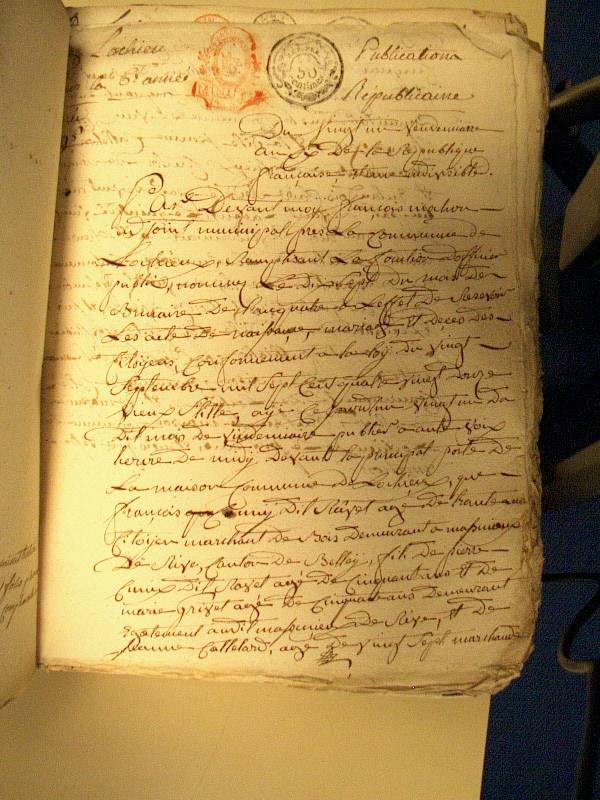 Lochieu
Publication
50
Centimes
Republicaine
Du vingt un vendemiaire
an X De la Republique
francaise et une indivisible.
Par Devant moy francois machon
adjoint municipal pres La Commune de
Lochieu, Remplissant La fonction d'officier
public, nommé Le Dix Sept du mois de
Brumaire De l'an quatre a L'effet De Recevoir
Les actes De naissance, mariage, et Deces des
Citoyens, Conformement a la loy du vingt
Septembre mil Sept Cent quatre vingt douze
vieux Stille, ay Ce jourdhui vingt un du
Dit mois de vendemiaire publier a aute voix
heure de midy, Devant la principal porte De
La maison Commune de Lochieu, que
francois Cuny Dit Rayet agé de trente
Citoyen marchant de Bois Demeurant a massinieux
De Rive, Canton de Belley, fils de pierre
Dit Rayet agé De Cinquant ans et de
marie grivet agé De Cinquante ans Demeurant
Egalement audit massinieux De Rive, Et De
Jeanne Cattelard, agé De vingt Sept marchande